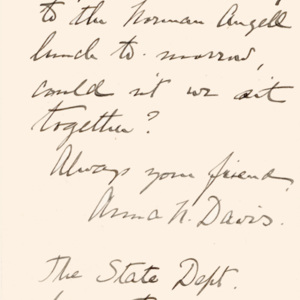 to the Norman Angell
lunch to-morrow,
could n't we sit
together?
Always your friend,
Anna N. Davis.
The State Dept.